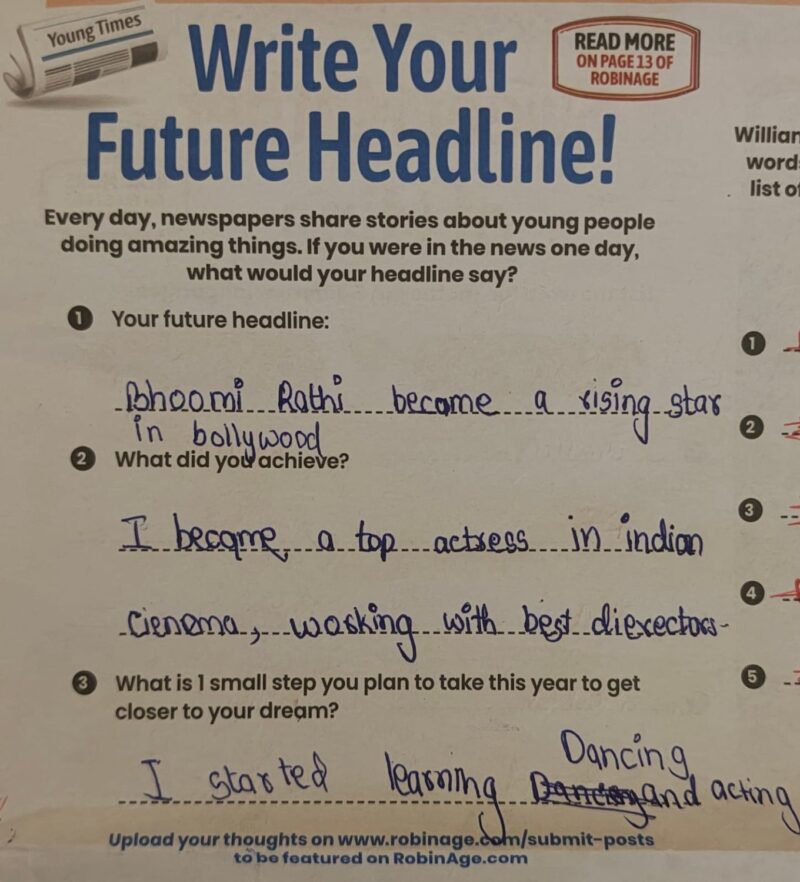 Young Times
Write Your
Future Headline!
READ MORE
ON PAGE 13 OF
ROBINAGE
Every day, newspapers share stories about young people
doing amazing things. If you were in the news one day,
what would your headline say?
1 Your future headline:
Bhoomi Rathi become a rising star
in bollywood
2 What did you achieve?
I became, a top actress in indian
cienema, working with best diexectors-
3 What is 1 small step you plan to take this year to get
closer to your dream?
Dancing
I started learning Dancing and acting
Upload your thoughts on www.robinage.com/submit-posts
to be featured on RobinAge.com
word
list of
1
2
3
4
5